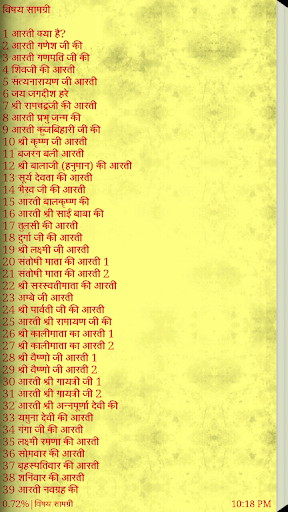 विषय सामग्री
1 आरती क्या है?
2 आरती गणेश जी की
3 आरती गणपति जी की
4 शिवजी की आरती
5 सत्यनारायण जी आरती
6 जय जगदीश हरे
7 श्री रामचद्रजी की आरती
8 आरती प्रभु जन्म की
9 आरती कुंजबिहारी जी की
10 श्री कृष्ण जी आरती
11 बजरंग बली आरती
12 श्री बालाजी (हनुमान) की आरती
13 सूर्य देवता की आरती
14 भैरव जी की आरती
15 आरती बालकृष्ण की
16 आरती श्री साई बाबा की
17 तुलसी की आरती
18 दुर्गा जी की आरती
19 श्री लक्ष्मी जी आरती
20 संतोषी माता की आरती 1
21 संतोषी माता की आरती 2
22 श्री सरस्वतीमाता की आरती
23 अम्बे जी आरती
24 श्री पार्वती जी की आरती
25 आरती श्री रामायण जी की
26 श्री कालीमाता का आरती 1
27 श्री कालीमाता का आरती 2
28 श्री वैष्णो जी आरती 1
29 श्री वैष्णो जी आरती 2
30 आरती श्री गायत्री जी 1
31 आरती श्री गायत्री जी 2
32 आरती श्री अन्नपूर्णा देवी की
33 यमुना देवी की आरती
34 गंगा जी की आरती
35 लक्ष्मी रमणा की आरती
36 सोमवार की आरती
37 बृहस्पतिवार की आरती
38 शनिवार की आरती
39 आरती नवग्रह की
0.72% | विषय सामग्री 10:18 PM